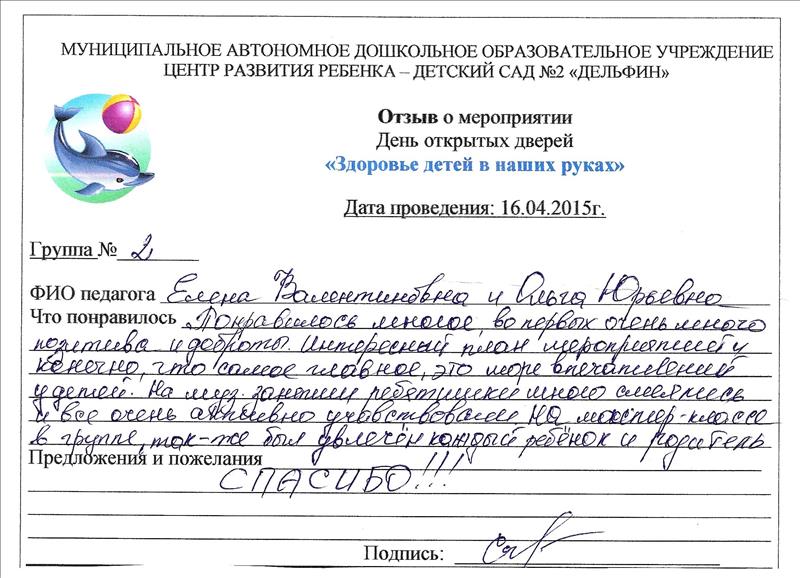 МУНИЦИПАЛЬНОЕ АВТОНОМНОЕ ДОШКОЛЬНОЕ ОБРАЗОВАТЕЛЬНОЕ УЧРЕЖДЕНИЕ
ЦЕНТР РАЗВИТИЯ РЕБЕНКА – ДЕТСКИЙ САД №2 «ДЕЛЬФИН»
Отзыв о мероприятии
День открытых дверей
«Здоровье детей в наших руках»
Дата проведения: 16.04.2015г.
Группа № 2
ФИО педагога Елена Валентиновна и Ольга Юрьевна
Что понравилось Понравилось многое, во первых очень много
позитива и доброты. Интересный план мероприятий и
конечно, что самое главное, это море впечатлений
у детей. На муз. занятии ребятишки много смеялись
и все очень активно учавствовали на мастер-классе
в группе, так-же был увлечён каждый ребёнок и родитель
Предложения и пожелания
СПАСИБО!!!
Подпись: